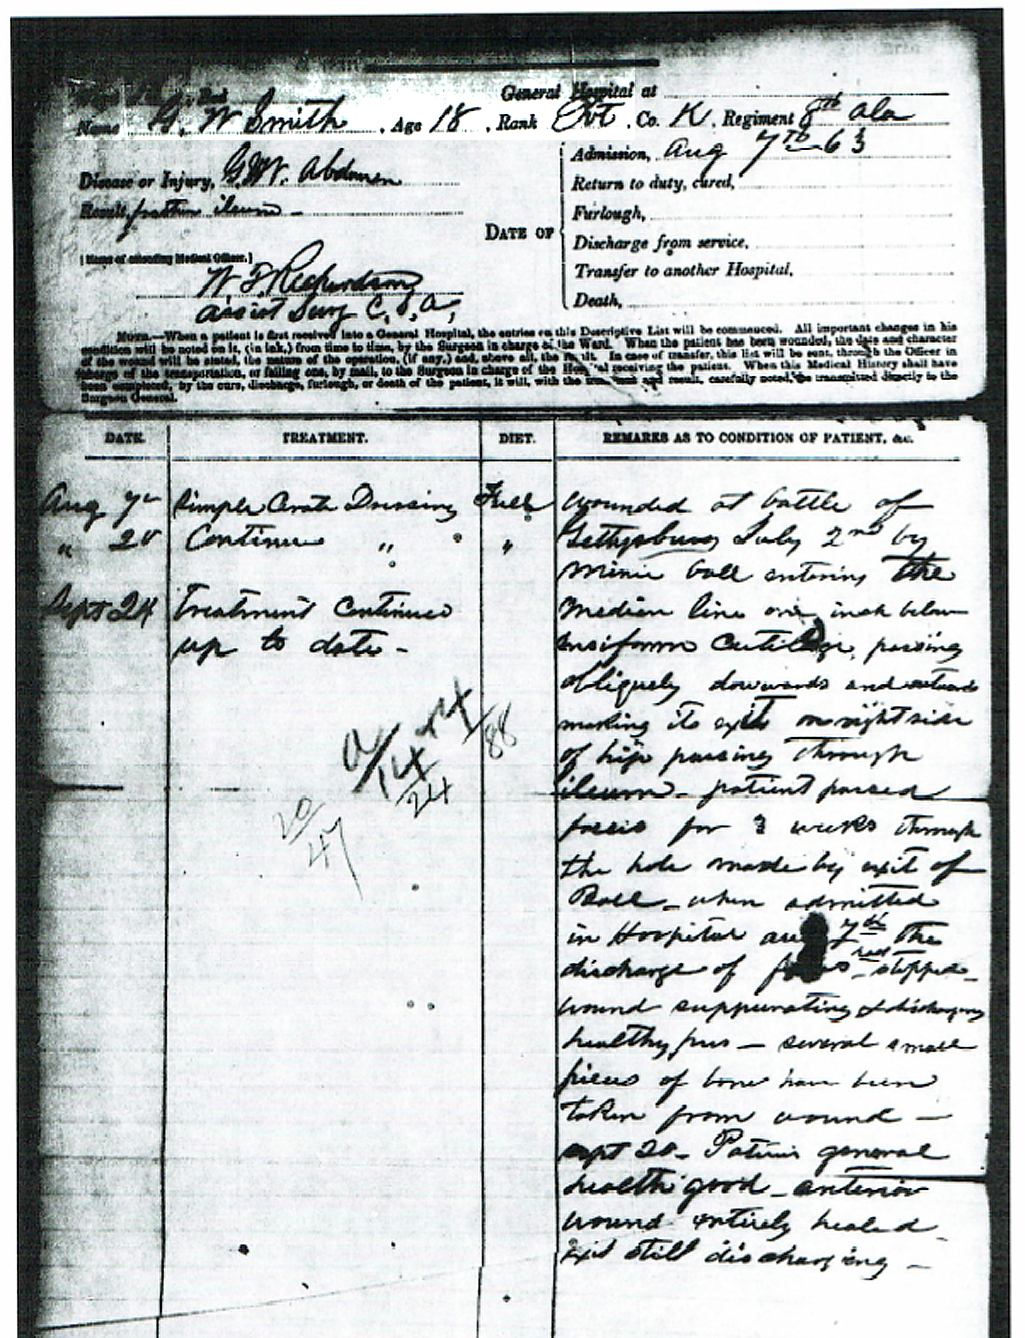 General Hospital at
Name G. W Smith, Age 18, Rank Pvt, Co. K, Regiment 8th Ala
Admission, Aug 7th 63
Disease or Injury, G.S.W. Abdomen
Return to duty, cured,
Result, ileum
Furlough,
DATE OF
Discharge from service,
[Name of attending Medical Officer.]
W F. Richardson
Transfer to another Hospital,
Assist Surg C. S. A,
Death,
NOTE.—When a patient is first received into a General Hospital, the entries on this Descriptive List will be commenced. All important changes in his
condition will be noted on it, (in ink,) from time to time, by the Surgeon in charge of the Ward. When the patient has been wounded, the date and character
of the wound will be stated, the nature of the operation, (if any,) and, above all, the result. In case of transfer, this list will be sent, through the Officer in
charge of the transportation, or failing one, by mail, to the Surgeon in charge of the Hospital receiving the patient. When this Medical History shall have
been completed, by the cure, discharge, furlough, or death of the patient, it will, with the and result, carefully noted, be transmitted directly to the
Surgeon General.
DATE. TREATMENT. DIET. REMARKS AS TO CONDITION OF PATIENT, &c.
Aug 7" Simple Cerate Dressing Full
" 28 Continue " "
Sept 24 Treatment continued
up to date -
wounded at battle of
Gettysburg July 2nd by
minie ball entering the
median line one inch below
ensiform cartilage, passing
obliquely downwards and outwards
making its exit on right side
of hip passing through
ileum - patient passed
foecis for 3 weeks through
the hole made by exit of
Ball - when admitted
in Hospital aug 7th the
discharge of had stopped -
wound suppurating & discharging
healthy pus - several small
pieces of bone have been
taken from wound -
sept 20 - Patients general
health good - anterior
wound entirely healed -
exit still discharging -
14
24
88
20
47